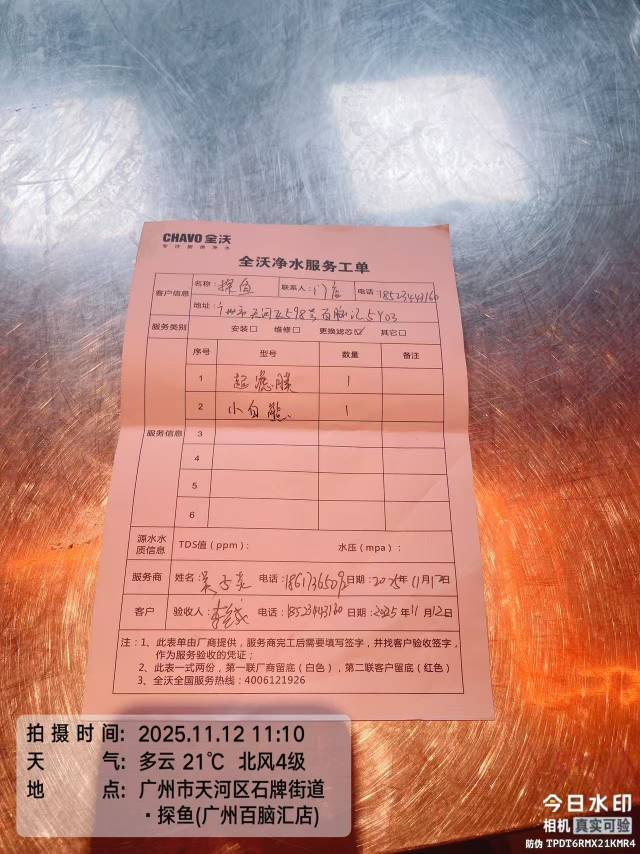 CHAVO 全沃
全沃净水服务工单
客户信息 名称：探鱼 联系人：门店 电话：18523443160
地址：广州市天河区598号百脑汇5403
服务类别 安装□ 维修□ 更换滤芯☑ 其它□
服务信息 序号 型号 数量 备注
1 起滤膜 1
2 小白熊 1
3
4
5
6
源水水质信息 TDS值（ppm）： 水压（mpa）：
服务商 姓名： 电话： 日期：2025年11月12日
客户 验收人： 电话：18523443160 日期：2025年11月12日
注：1、此表单由厂商提供，服务商完工后需要填写签字，并找客户验收签字，
作为服务验收的凭证；
2、此表一式两份，第一联厂商留底（白色），第二联客户留底（红色）
3、全沃全国服务热线：4006121926
拍摄时间：2025.11.12 11:10
天气：多云 21℃ 北风4级
地点：广州市天河区石牌街道
·探鱼(广州百脑汇店)
今日水印
相机 真实可验
防伪 TPDT6RMX21KMR4